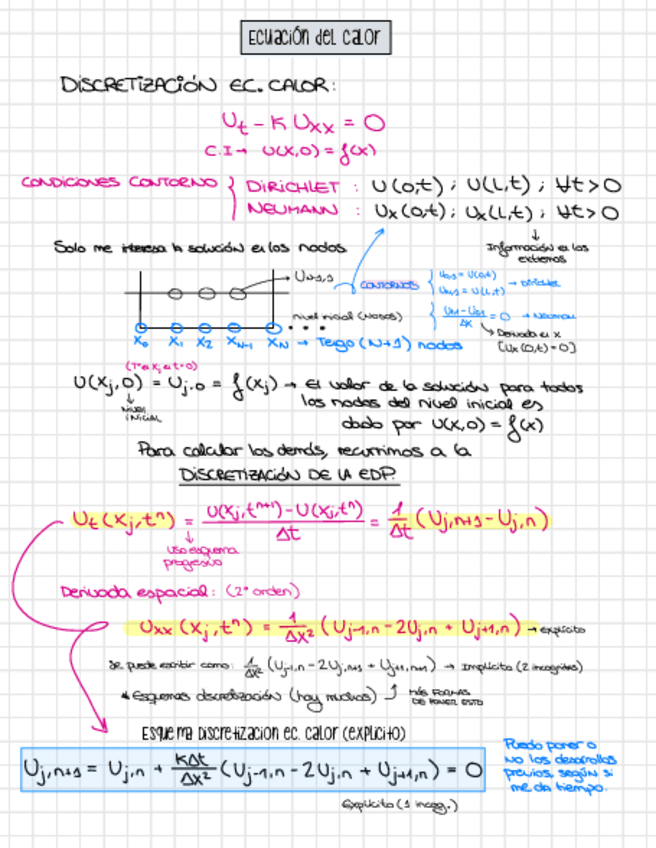 Ecuación del calor
DISCRETIZACIÓN EC. CALOR:
U_t - K U_xx = 0
C.I → U(X,0) = f(x)
CONDICIONES CONTORNO { DIRICHLET : U(0,t) ; U(L,t) ; ∀t>0
NEUMANN : U_x(0,t) ; U_x(L,t) ; ∀t>0
↓
Información en los
extremos
Solo me interesa la solución en los nodos
CONTORNOS
→ Dirichlet
= 0 → Neumann
Derivada en x
[U_x(0,t)=0]
nivel inicial
X_0 X_1 X_2 X_N-1 X_N → Tengo (N+1) nodos
U(X_j,0) = U_j,0 = f(X_j) → El valor de la solución para todos
los nodos del nivel inicial es
dado por U(X,0) = f(x)
↓
nivel
inicial
Para calcular los demás, recurrimos a la
DISCRETIZACIÓN DE LA EDP.
U_t(X_j,t^n) = U(X_j,t^n+1) - U(X_j,t^n) / Δt = 1/Δt (U_j,n+1 - U_j,n)
↓
Uso esquema
progresivo
Derivada espacial: (2º orden)
U_xx(X_j,t^n) = 1/Δx² (U_j-1,n - 2U_j,n + U_j+1,n) → explícito
Se puede escribir como: 1/Δx² (U_j-1,n - 2U_j,n+1 + U_j+1,n+1) → Implícito (2 incógnitas)
* Esquemas discretización (hay muchos)
MÁS FORMAS
DE PONER ESTO
Esquema Discretizacion ec. calor (explícito)
U_j,n+1 = U_j,n + KΔt/Δx² (U_j-1,n - 2U_j,n + U_j+1,n) = 0
Explícito (1 incog.)
Puedo poner o
no los desarrollos
previos, según si
me da tiempo.